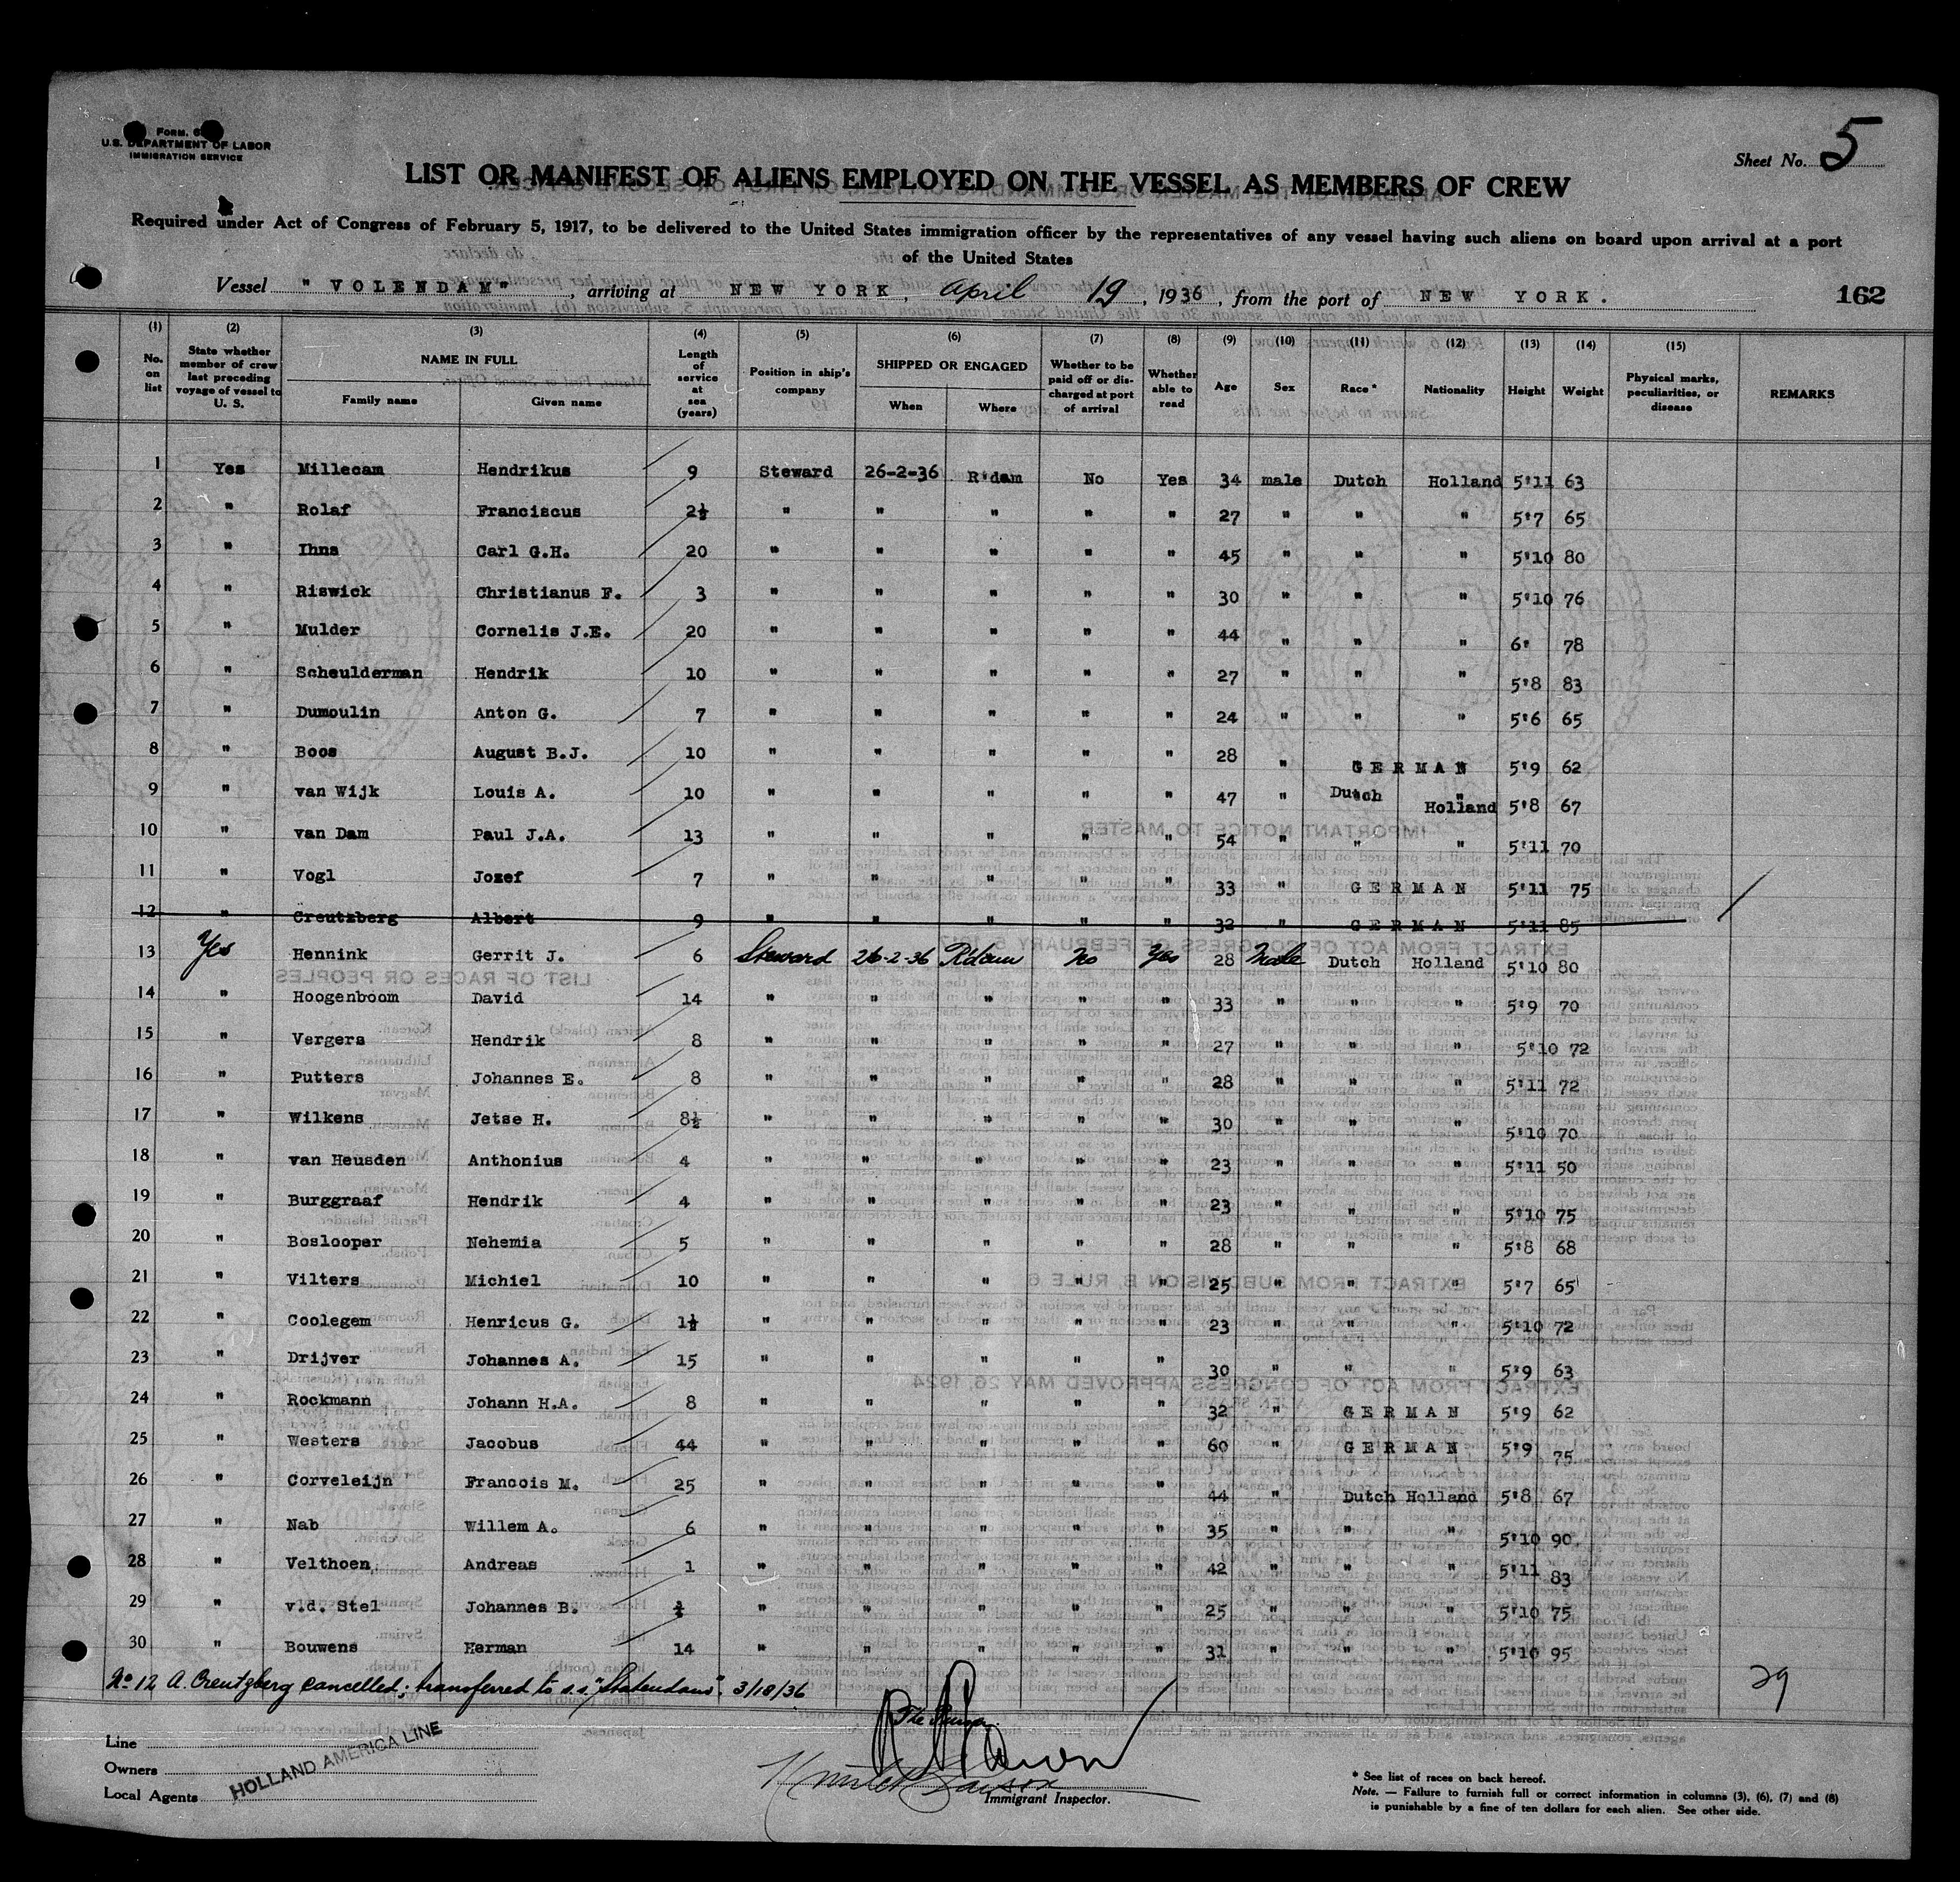 Form. 6
U.S. DEPARTMENT OF LABOR
IMMIGRATION SERVICE
Sheet No. 5
LIST OR MANIFEST OF ALIENS EMPLOYED ON THE VESSEL AS MEMBERS OF CREW
Required under Act of Congress of February 5, 1917, to be delivered to the United States immigration officer by the representatives of any vessel having such aliens on board upon arrival at a port
of the United States
Vessel "VOLENDAM", arriving at NEW YORK, april 19, 1936, from the port of NEW YORK. 162
(1) (2) (3) (4) (5) (6) (7) (8) (9) (10) (11) (12) (13) (14) (15)
No. on list State whether member of crew last preceding voyage of vessel to U. S. NAME IN FULL Family name Given name Length of service at sea (years) Position in ship's company SHIPPED OR ENGAGED When Where Whether to be paid off or discharged at port of arrival Whether able to read Age Sex Race* Nationality Height Weight Physical marks, peculiarities, or disease REMARKS
1 Yes Millecam Hendrikus 9 Steward 26-2-36 R'dam No Yes 34 male Dutch Holland 5'11 63
2 " Rolaf Franciscus 2½ " " " " " 27 " " " 5'7 65
3 " Ihns Carl G.H. 20 " " " " " 45 " " " 5'10 80
4 " Riswick Christianus F. 3 " " " " " 30 " " " 5'10 76
5 " Mulder Cornelis J.E. 20 " " " " " 44 " " " 6' 78
6 " Scheulderman Hendrik 10 " " " " " 27 " " " 5'8 83
7 " Dumoulin Anton G. 7 " " " " " 24 " " " 5'6 65
8 " Boos August B.J. 10 " " " " " 28 " GERMAN 5'9 62
9 " van Wijk Louis A. 10 " " " " " 47 " Dutch " Holland 5'8 67
10 " van Dam Paul J.A. 13 " " " " " 54 " " " 5'11 70
11 " Vogl Jozef 7 " " " " " 33 " GERMAN 5'11 75
12 " Creutzberg Albert 9 " " " " " 32 " GERMAN 5'11 85
13 Yes Hennink Gerrit J. 6 Steward 26-2-36 R'dam No Yes 28 Male Dutch Holland 5'10 80
14 " Hoogenboom David 14 " " " " " 33 " " " 5'9 70
15 " Vergers Hendrik 8 " " " " " 27 " " " 5'10 72
16 " Putters Johannes E. 8 " " " " " 28 " " " 5'11 72
17 " Wilkens Jetse H. 8½ " " " " " 30 " " " 5'10 70
18 " van Heusden Anthonius 4 " " " " " 23 " " " 5'11 50
19 " Burggraaf Hendrik 4 " " " " " 23 " " " 5'10 75
20 " Boslooper Nehemia 5 " " " " " 28 " " " 5'8 68
21 " Vilters Michiel 10 " " " " " 25 " " " 5'7 65
22 " Coolegem Henricus G. 1½ " " " " " 23 " " " 5'10 72
23 " Drijver Johannes A. 15 " " " " " 30 " " " 5'9 63
24 " Rockmann Johann H.A. 8 " " " " " 32 " GERMAN 5'9 62
25 " Westers Jacobus 44 " " " " " 60 " GERMAN 5'9 75
26 " Corveleijn Francois M. 25 " " " " " 44 " Dutch Holland 5'8 67
27 " Nab Willem A. 6 " " " " " 35 " " " 5'10 90.
28 " Velthoen Andreas 1 " " " " " 42 " " " 5'11 83
29 " v.d. Stel Johannes B. " " " " " 25 " " " 5'10 75
30 " Bouwens Herman 14 " " " " " 31 " " " 5'10 95
No 12 A. Creutzberg cancelled; transferred to s.s. "Statendam". 3/18/36
29
Line
Owners
Local Agents
HOLLAND AMERICA LINE
Immigrant Inspector.
* See list of races on back hereof.
Note. — Failure to furnish full or correct information in columns (3), (6), (7) and (8)
is punishable by a fine of ten dollars for each alien. See other side.